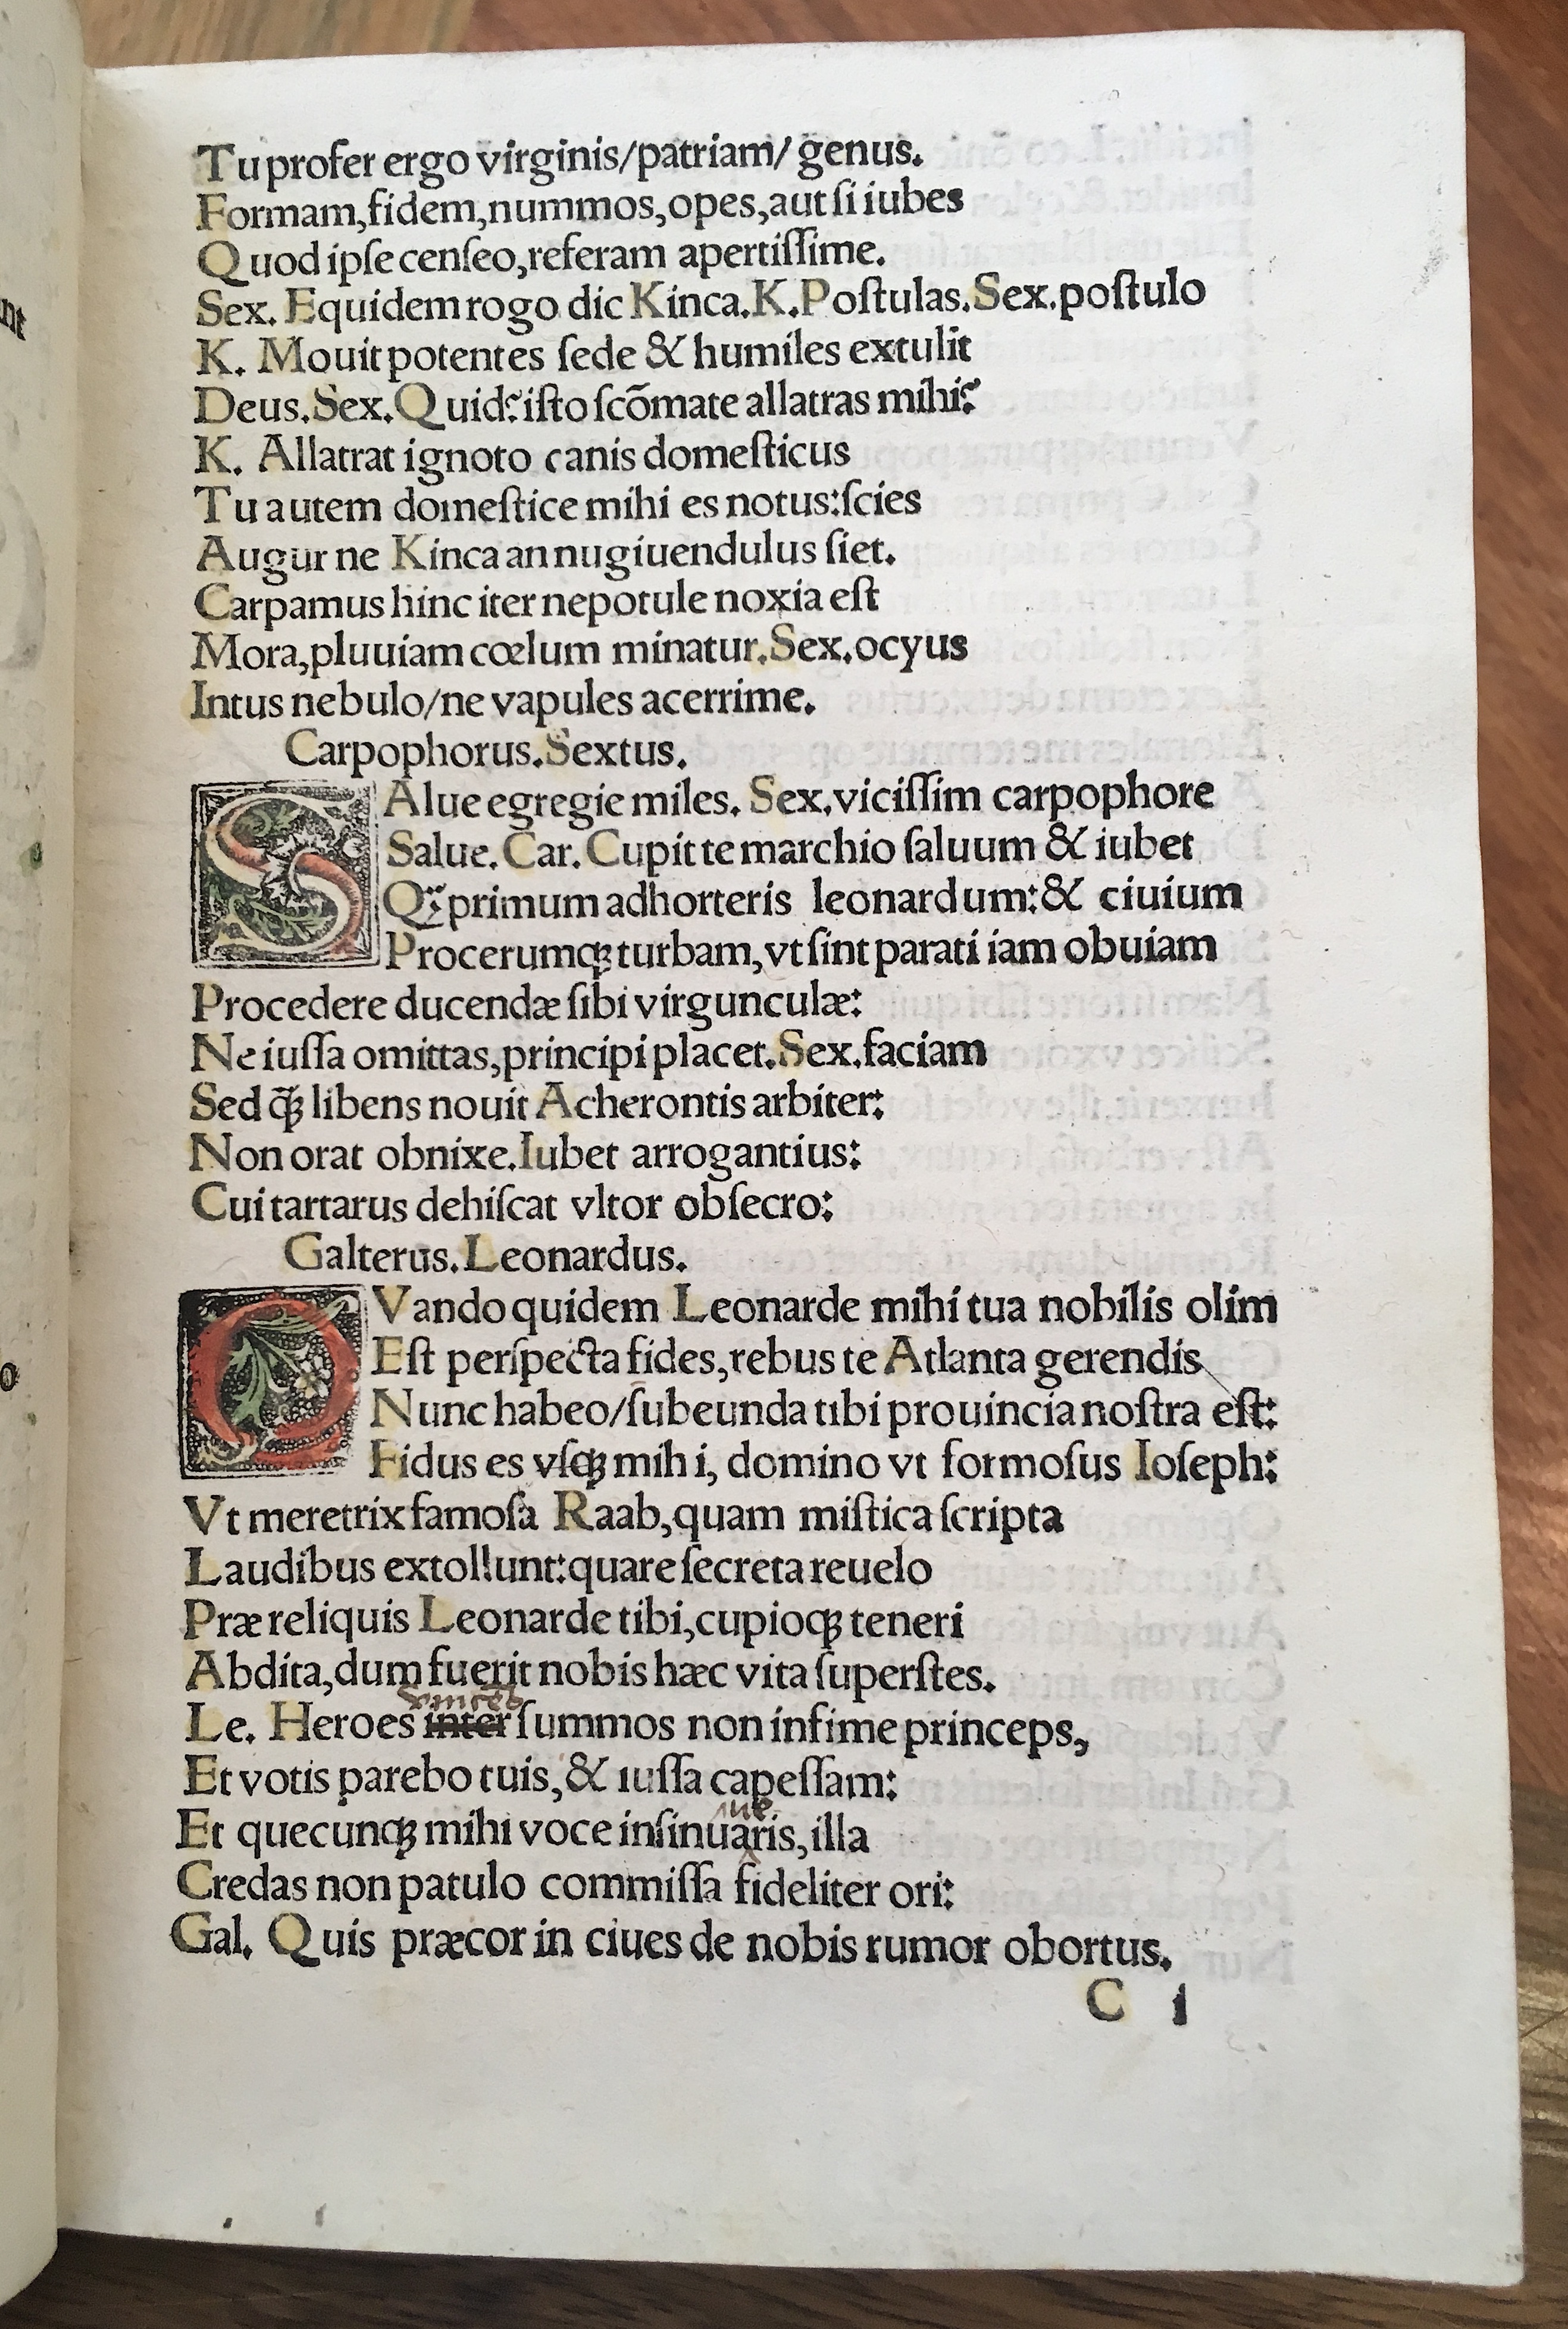 Tu profer ergo virginis/patriam/ genus.
Formam, fidem, nummos, opes, aut ſi iubes
Quod ipſe cenſeo, referam apertiſſime.
Sex. Equidem rogo dic Kinca. K. Poſtulas. Sex. poſtulo
K. Mouit potentes ſede & humiles extulit
Deus. Sex. Quid? iſto ſcõmate allatras mihi?
K. Allatrat ignoto canis domeſticus
Tu autem domeſtice mihi es notus: ſcies
Augur ne Kinca an nugiuendulus ſiet.
Carpamus hinc iter nepotule noxia eſt
Mora, pluuiam cœlum minatur. Sex. ocyus
Intus nebulo/ne vapules acerrime.
Carpophorus. Sextus.
SAlue egregie miles. Sex. viciſſim carpophore
Salue. Car. Cupit te marchio ſaluum & iubet
Qꝫ primum adhorteris leonardum: & ciuium
Procerumqꝫ turbam, vt ſint parati iam obuiam
Procedere ducendæ ſibi virgunculæ:
Ne iuſſa omittas, principi placet. Sex. faciam
Sed q̃ꝫ libens nouit Acherontis arbiter:
Non orat obnixe. Iubet arrogantius:
Cui tartarus dehiſcat vltor obſecro:
Galterus. Leonardus.
QVando quidem Leonarde mihi tua nobilis olim
Eſt perſpecta fides, rebus te Atlanta gerendis
Nunc habeo/ſubeunda tibi prouincia noſtra eſt:
Fidus es vſqꝫ mihi, domino vt formoſus Ioſeph:
Vt meretrix famoſa Raab, quam miſtica ſcripta
Laudibus extollunt: quare ſecreta reuelo
Præ reliquis Leonarde tibi, cupioqꝫ teneri
Abdita, dum fuerit nobis hæc vita ſuperſtes.
Le. Heroes inter ſummos non infime princeps,
Et votis parebo tuis, & iuſſa capeſſam:
ue
Et quecunqꝫ mihi voce inſinuaris, illa
Credas non patulo commiſſa fideliter ori:
Gal. Quis præcor in ciues de nobis rumor obortus.
C 1